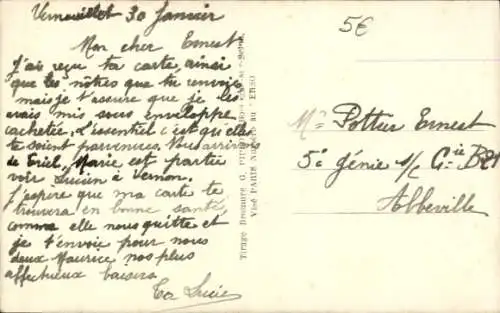 Vernouillet 30 Janvier
Mon cher Ernest
J'ai reçu ta carte, ainsi
que les nôtres que tu renvoie
mais je t'assure que je les
avais mis sous enveloppe
cachetée. L'essentiel c'est qu'elles
te soient parvenues. Nous arrivons
de Triel, Marie est partie
voir Lucien à Vernon.
J'espère que ma carte te
trouvera en bonne santé,
comme elle nous quitte et
je t'envoie pour nous
deux Maurice nos plus
affectueux baisers
Ta Lucie
Tirage Bromure G.
Visé PARIS
5€
Mr Pottier Ernest
5e Génie s/c Cie
Abbeville